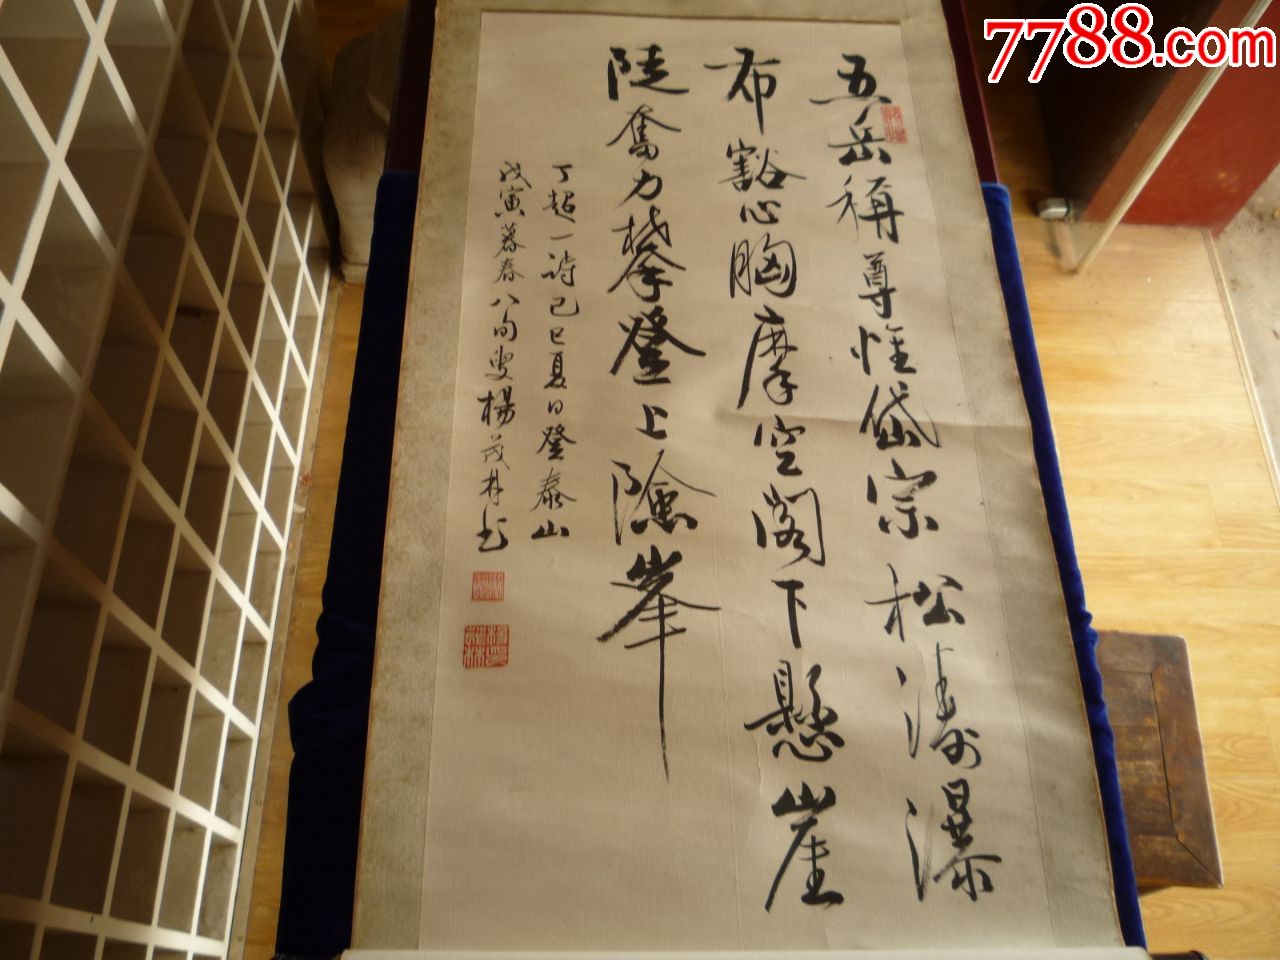 7788.com
五岳稱尊惟岱宗松濤瀑
布豁心胸摩空閣下懸崖
陡奮力攀登上險峯
丁超一詩己巳夏日登泰山
戊寅暮春八旬叟楊茂林书